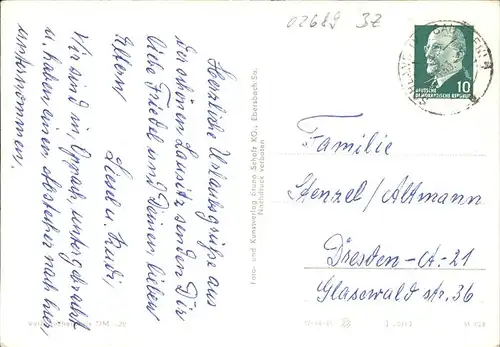 02689 3Z
DEUTSCHE
DEMOKRATISCHE REPUBLIK
10
Herzliche Urlaubsgrüße aus
der schönen Lausitz senden Dir
liebe Friedel und Deinen lieben
Eltern
Liesel u. Rudi,
Wir sind in Oppach, untergebracht
u. haben einen Abstecher nach hier
unternommen.
Foto- und Kunstverlag Bruno Scholz KG., Ebersbach-Sa.
Nachdruck verboten
Familie
Stenzel/Altmann
Dresden-A-21
Glasewald str. 36